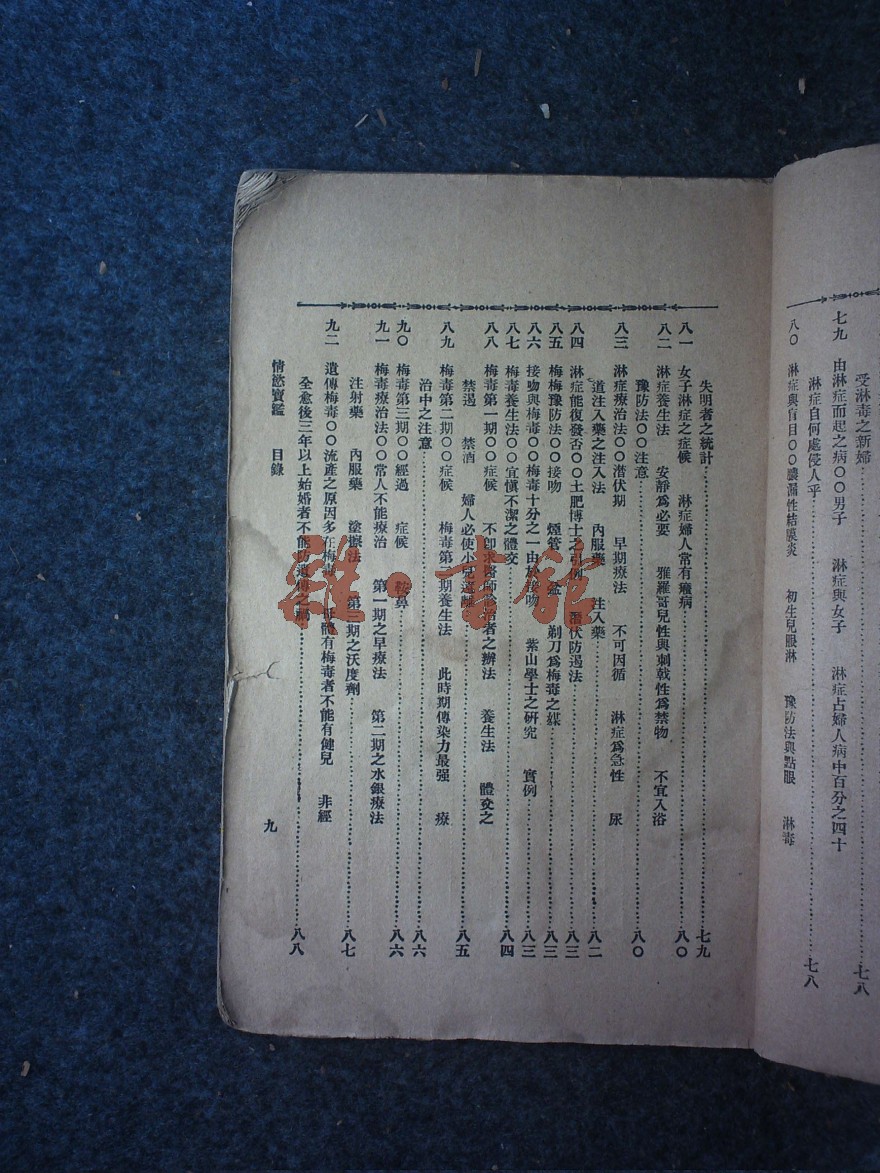 受淋毒之新婦……七八
七九　由淋症而起之病〇〇男子　淋症與女子　淋症占婦人病中百分之四十
淋症自何處侵人乎……七八
八〇　淋症與盲目〇〇膿漏性結膜炎　初生兒眼淋　豫防法與點眼　淋毒
失明者之統計……七九
八一　女子淋症之症候　淋症婦人常有癪病……八〇
八二　淋症養生法　安靜爲必要　雅羅哥兒性與刺戟性爲禁物　不宜入浴
豫防法〇〇注意……八〇
八三　淋症療治法〇〇潜伏期　早期療法　不可因循　淋症爲急性　尿
道注入藥之注入法　內服藥　注入藥……八二
八四　淋症能復發否〇〇土肥博士之引例　潛伏防遏法……八三
八五　梅梅豫防法〇〇接吻　煙管　盃　剃刀爲梅毒之媒……八三
八六　接吻與梅毒〇〇梅毒十分之一由於接吻　紫山學士之硏究　實例……八三
八七　梅毒養生法〇〇宜愼不潔之體交……八四
八八　梅毒第一期〇〇症候　不卽求醫師之治者之辦法　養生法　體交之
禁遏　禁酒　婦人必使小兒遠離……八五
八九　梅毒第二期〇〇症候　梅毒第二期養生法　此時期傳染力最强　療
治中之注意……八六
九〇　梅毒第三期〇〇經過　症候　鞍鼻……八六
九一　梅毒療治法〇〇常人不能療治　第一期之早療法　第二期之水銀療法
注射藥　內服藥　塗擦法　第三期之沃度劑……八七
九二　遺傳梅毒〇〇流產之原因多在梅毒　母體有梅毒者不能有健兒　非經
全愈後三年以上始婚者不能防遺傳之禍……八八
情慾寶鑑　目錄
九
雜·書館